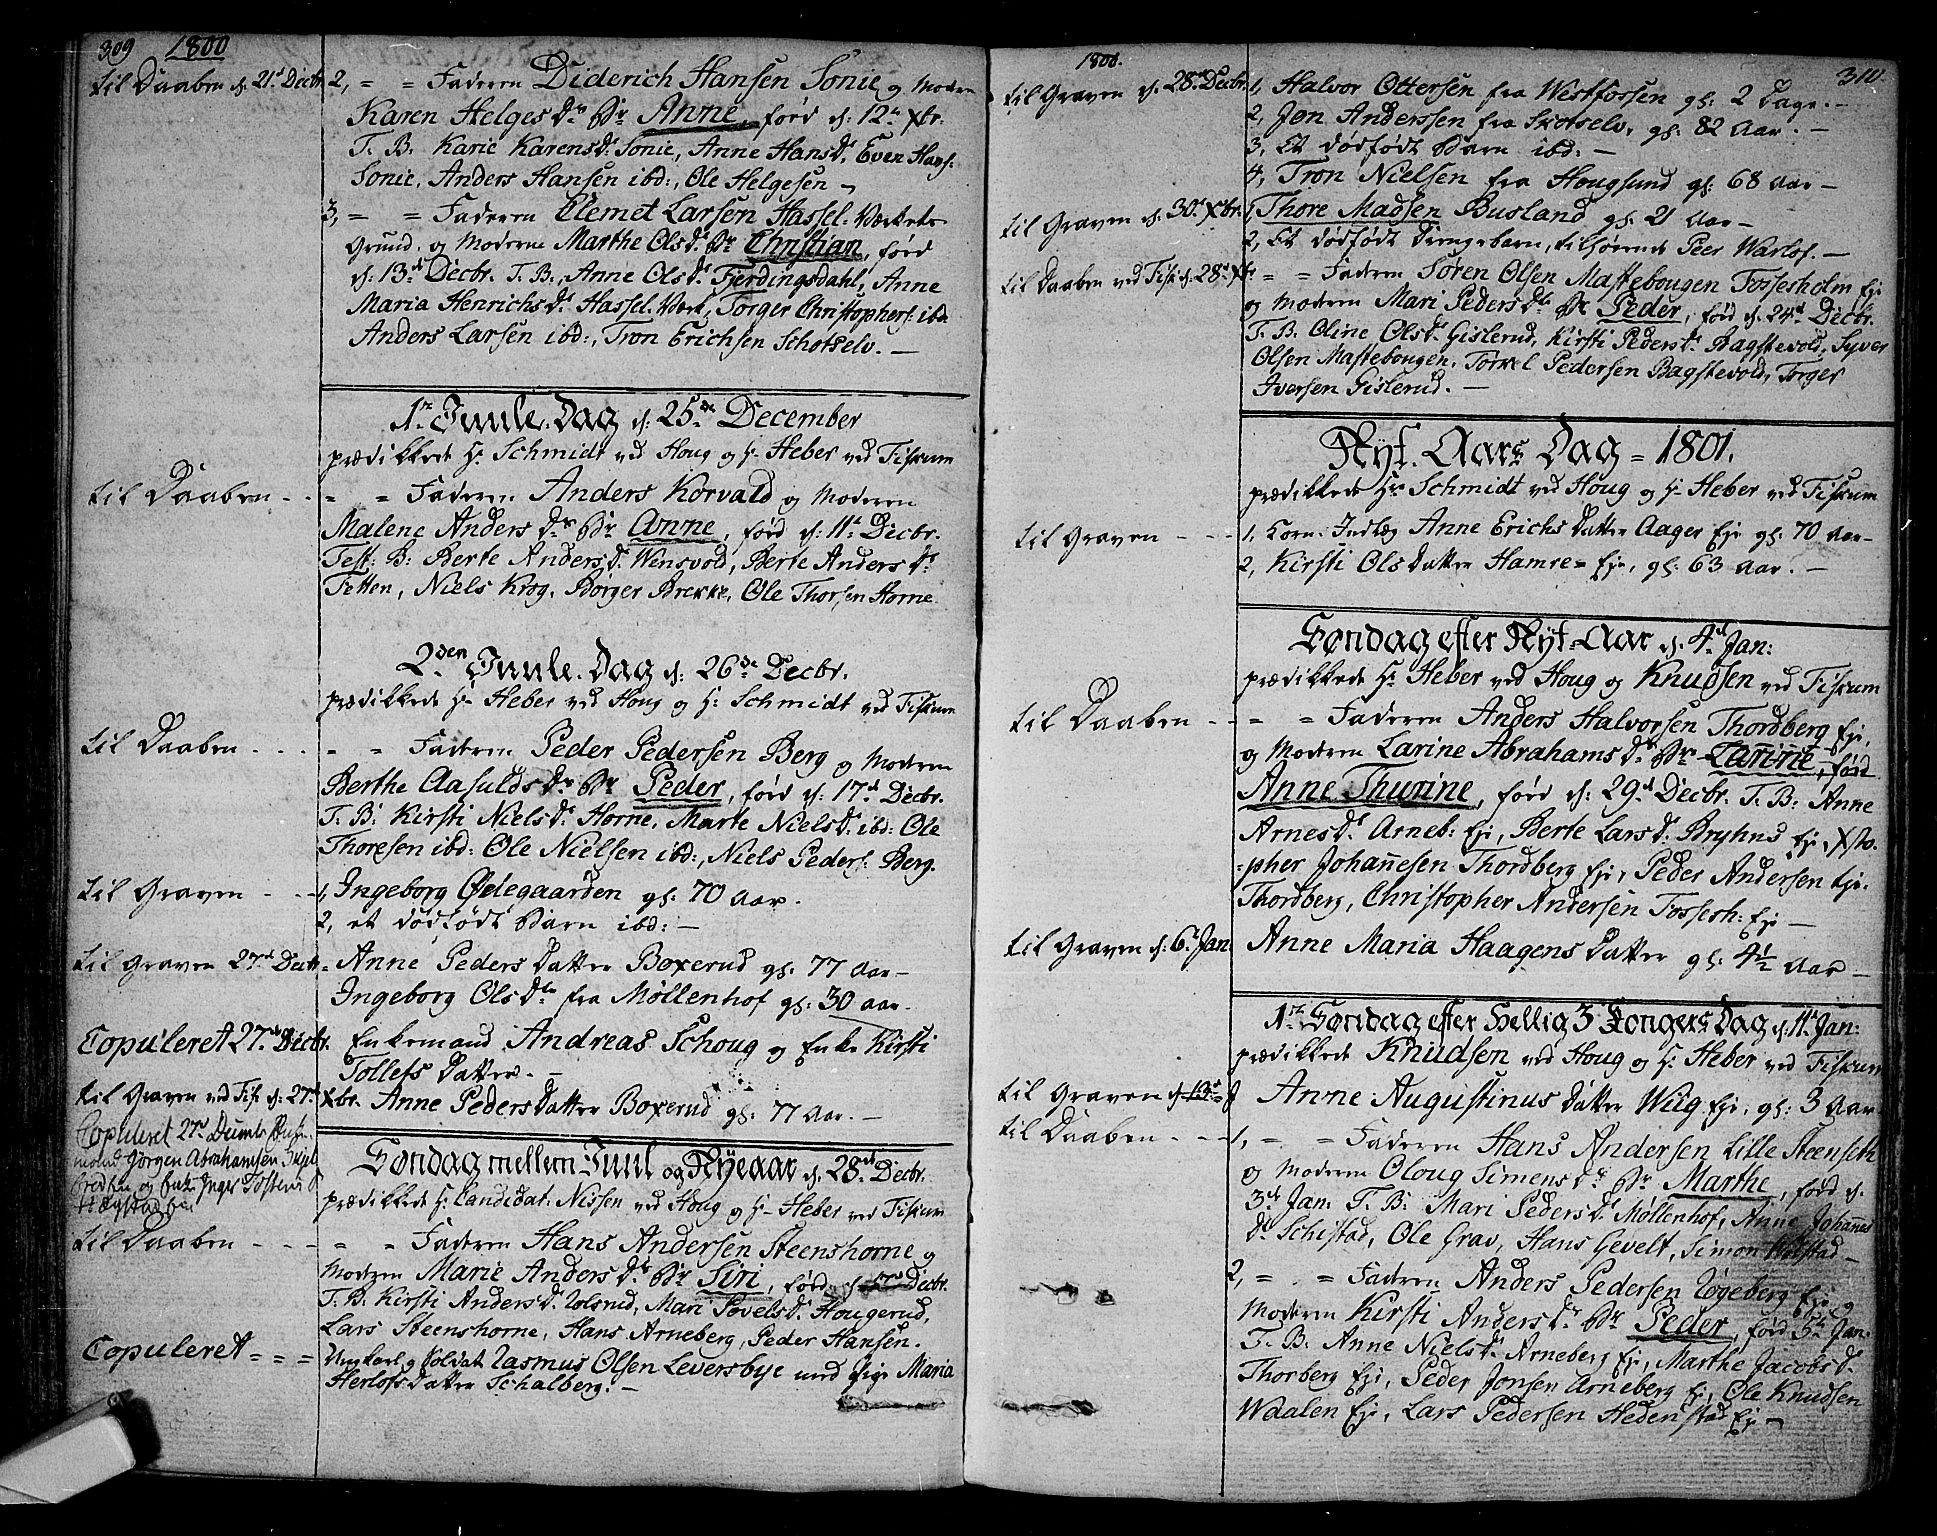 309 1800
til Daaben d. 21d Decbr. 2, = = Faderen Diderich Hansen Sonie og Moderen
Karen Helges Dr Br Anne, fød d. 12te Xbr.
T. B. Karie Karensd. Sonie, Anne Hansd. Even Hans:
Sonie, Anders Hansen ibd:, Ole Helgesen –
3, = = Faderen Clemet Larsen Hassel-Værkets
Grund og Moderne Marthe Olsdr Br Christian, fød
d. 13d Decbr. T. B. Anne Olsdr Fjerdingsdahl, Anne
Maria Henrichsdr Hassel-Værk, Torger Christophers: ibd.
Anders Larsen ibd:, Tron Erichsen Schotselv. –
1te Juule-Dag d. 25de December
prædikkede Hr Schmidt ved Houg og Hr Heber ved Fiskum
til Daaben - - - = = Faderen Anders Korvald og Moderen
Malene Anders Dr Br Anne, fød d: 11te Decbr.
Test: B: Berte Andersd. Wensvold, Berte Anders dr
Fetten, Niels Krog, Børger Brekke, Ole Thorsen Horne
2den Juule-Dag d. 26de Decbr.
prædikkede Hr Heber ved Houg og Hr Schmidt ved Fiskum
til Daaben - - - = = Faderen Peder Pedersen Berg og Moderen
Berthe Aasulds Dr Br Peder, fød d: 17d Decbr.
T. B: Kirsti Nielsdr Horne, Marte Nielsd. ibd: Ole
Thoresen ibd: Ole Nielsen ibd:, Niels Peders: Berg.
til Graven - - - 1, Ingeborg Ødegaarden gl: 70 Aar.
2, et dødfødt Barn ibd: –
til Graven 27d Decbr. = Anne Peders Datter Boxerud gl: 77 Aar –
Ingeborg Olsdtr fra Møllenhof gl: 30 aar.
Copuleret 27de Decbr. Enkemand Andreas Schoug og Enke Kirsti
Tollefs Datter. –
til Graven ved Fisk: d: 27de Xbr. Anne Peders Datter Boxerud gl: 77 Aar. –
Copuleret 27d
Jørgen Abrahamsen
og Enke Inger Tostens
Søndag mellem Juul og Nyeaar d. 28de Decbr.
prædikkede Hr Candidat: Nissen ved Houg og Hr Heber ved Fiskum
til Daaben - - - - = = Faderen Hans Andersen Steenshorne og
Moderen Marie Anders Dr Br Siri, fød d. Decbr.
T. B. Kirsti Andersd. Mari Povelsdr Hougerud,
Lars Steenshorne, Hans Arneberg, Peder Hansen.
Copuleret = = = Ungkarl og Soldat Rasmus Olsen Leversbye med Pige Maria
Herlofs datter Schalberg. –
1800. 310.
til Graven d. 28de Decbr. 1, Halvor Ottersen fra Westfossen gl: 2 Dage. –
2, Jøn Anderssen fra Skotselv, gl: 82 Aar. –
3, Et dødfødt Barn ibd: –
4, Tron Nielsen fra Hougsund gl: 68 Aar –
til Graven d. 30d Xbr. 1, Thore Madsen Busland gl: 21 Aar –
2, Et dødfødt Drengebarn, tilhørende Peer Warlof. –
til Daaben ved Fisk: d. 28de Xbr. = = Faderen Søren Olsen Mastebougen Fossesholm Eje
og Moderen Mari Pedersdtr Br Peder, fød d. 24d Decbr.
T. B. Oline Olsdr Gislerud, Kirsti Pedersdr Bagstevold, Syver
Olsen Mastebougen, Torkel Pedersen Bagstevold, Torger
Iversen Gislerud. –
Nyt-Aars Dag = 1801.
prædikkede Hr Schmidt ved Houg og Hr Heber ved Fiskum
til Graven - - - 1, Corn: Indlæg Anne Erichs Datter Aager Eje gl: 70 Aar –
2, Kirsti Ols Datter Hamre = Eje, gl: 63 Aar. –
Søndag efter Nyt-Aar d. 4d Jan:
prædikkede Hr Heber ved Houg og Knudsen ved Fiskum
til Daaben - - - = = Faderen Anders Halvorsen Thordberg Eje,
og Moderen Larine Abrahams Dr Br Larine, fød
Anne Thurine, fød d: 29d Decbr. T. B: Anne
Arnesdr Arneb: Eje, Berte Larsdr Bryhns Eje, Xto-
-pher Johannesen Thordberg Eje, Peder Andersen Eje.
Thordberg, Christopher Andersen Fossesh: Eje –
til Graven d: 6t Jan. Anne Maria Haagens Datter gl: 4½ Aar –
1te Søndag efter Hellig 3 Kongers Dag d. 11te Jan:
prædikkede Knudsen ved Houg og Hr Heber ved Fiskum
til Graven d. Anne Augustinus Datter Wiig Eje, gl: 3 Aar
til Daaben - - - 1, = = Faderen Hans Andersen Lille Steenseth
og Moderen Oloug Simens Dr Br Marthe, fød d.
3de Jan: T. B: Mari Pedersdr Møllenhof, Anne Johannes
Dr Schistad, Ole Grav, Hans Gevelt, Simon Kolstad –
2, = = Faderen Anders Pedersen Eje og
Moderen Kirsti Anders Dr Br Peder, fød 5te Jan:
T. B: Anne Nielsdr Arneberg Eje, Marthe Jacobsd.
Thorberg Eje, Peder Jonsen Arneberg Eje, Ole Knudsen
Waalen Eje, Lars Pedersen Hedenstad Eje –